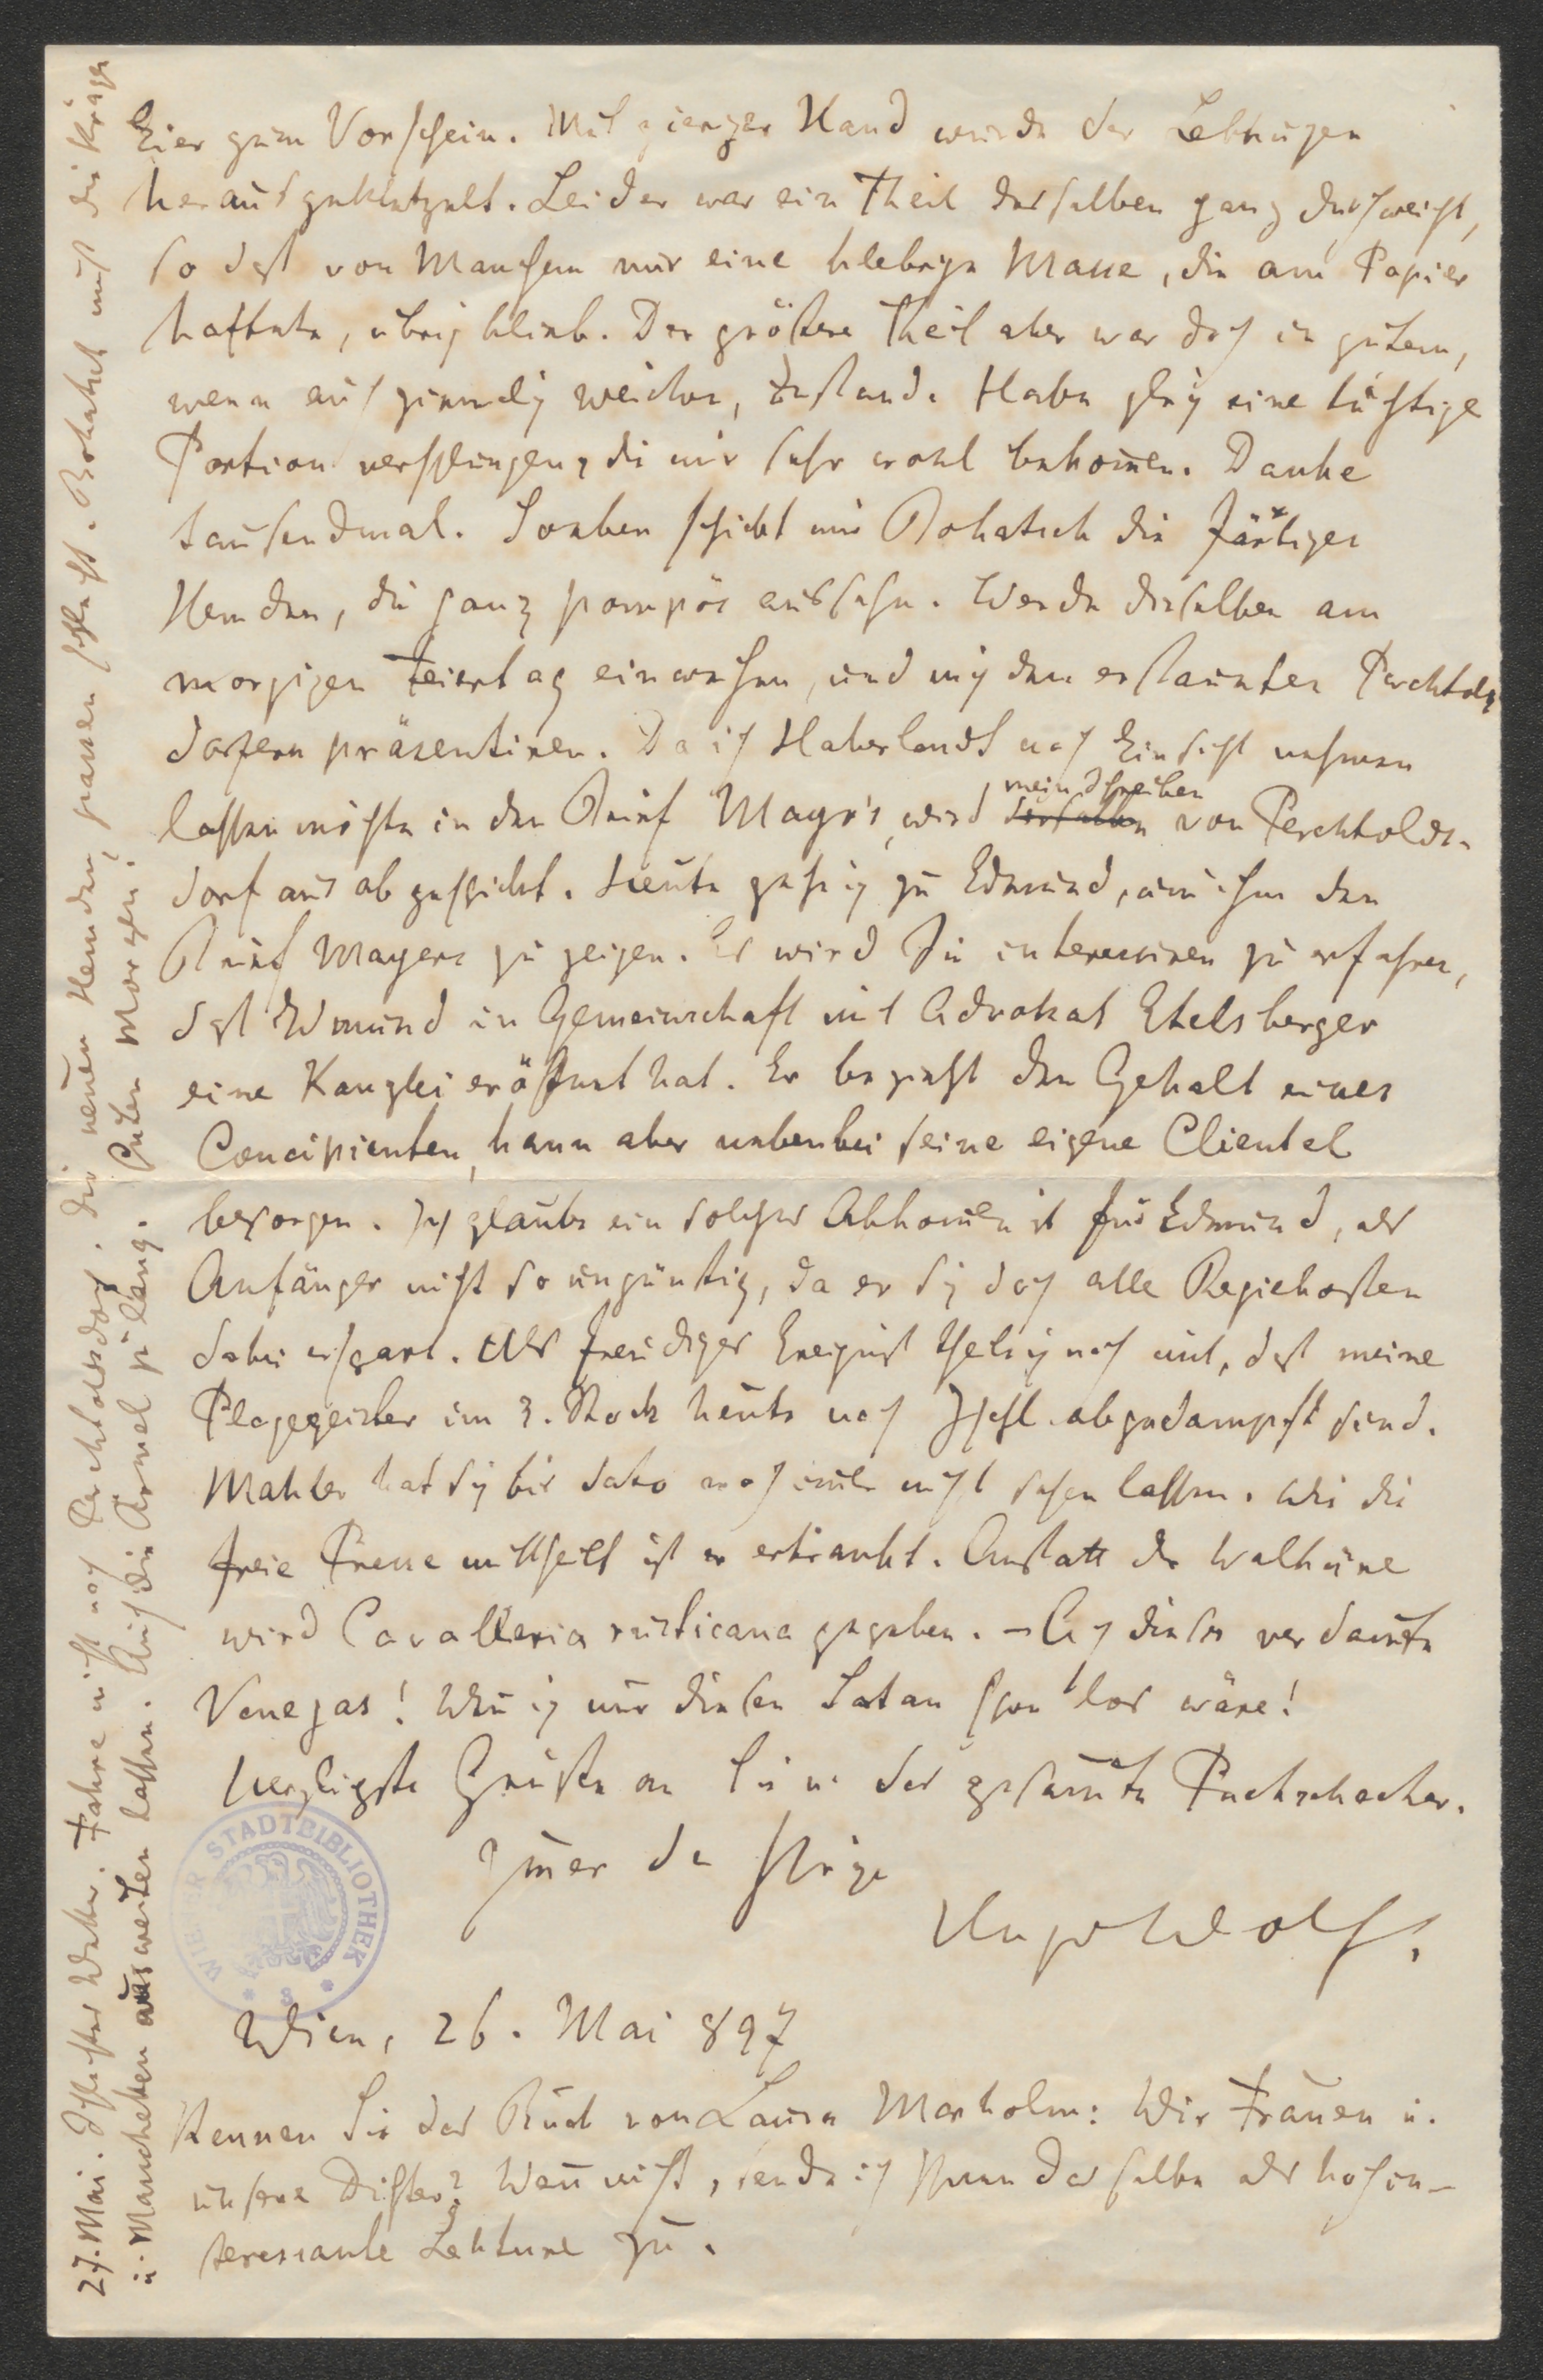 Eier zum Vorschein. Mit gieriger Hand wurde der Lebkuchen
herausgekletzelt. Leider war ein Theil desselben ganz durchweicht,
so daß von Manchem nur eine klebrige Masse, die am Papier
haftete, übrig blieb. Der größere Theil aber war doch in gutem,
wenn auch ziemlich weichen, Zustand. Habe gleich eine tüchtige
Portion verschlungen, die mir sehr wohl bekommen. Danke
tausendmal. Soeben schickt mir Bohatsch die färbigen
Hemden, die ganz pompös aussehen. Werde dieselben am
morgigen Feiertag einweihen, und mich den erstaunten Perchtolds
dorfern präsentiren. Da ich Haberlandt noch Einsicht nehmen
lassen möchte in den Brief Mayr's, wird mein Schreiben von Perchtolds-
dorf aus abgeschickt. Heute gehe ich zu Edmund, um ihm den
Brief Mayers zu zeigen. Es wird Sie interessiren zu erfahren,
daß Edmund in Gemeinschaft mit Advokat Etelsberger
eine Kanzlei eröffnet hat. Er bezieht den Gehalt eines
Concipienten, kann aber nebenbei seine eigene Clientel
besorgen. Ich glaube ein solches Abkommen ist für Edmund, als
Anfänger nicht so ungünstig, da er sich doch alle Regiekosten
dabei erspart. Als freudiges Ereigniß theile ich noch mit, daß meine
Plagegeister im 3. Stock heute nach Ischl abgedampft sind.
Mahler hat sich bis dato noch immer nicht sehen lassen. Wie die
freie Presse mittheilt ist er erkrankt. Anstatt der Walküre
wird Cavalleria rusticana gegeben. – Ach dieser verdammte
Venegas! Wenn ich nur diesen Satan schon los wäre!
Herzlichste Grüße an Sie u. das gesammte Puchschacher.
Immer der Ihrige
Hugo Wolf.
WIENER STADTBIBLIOTHEK
Wien, 26. Mai 897
Kennen Sie das Buch von Laura Marholm: Wir Frauen u.
unsere Dichter? Wenn nicht, sende ich Ihnen dasselbe als hochin-
teressante Lektüre zu.
27. Mai. Schlechtes Wetter. Fahre nicht nach Perchtoldsdorf. Die neuen Hemden passen schlecht. Bohatsch muß die Krägen
u. Manchetten ausweiten lassen. Auch die Ärmel zu lang. Guten Morgen!